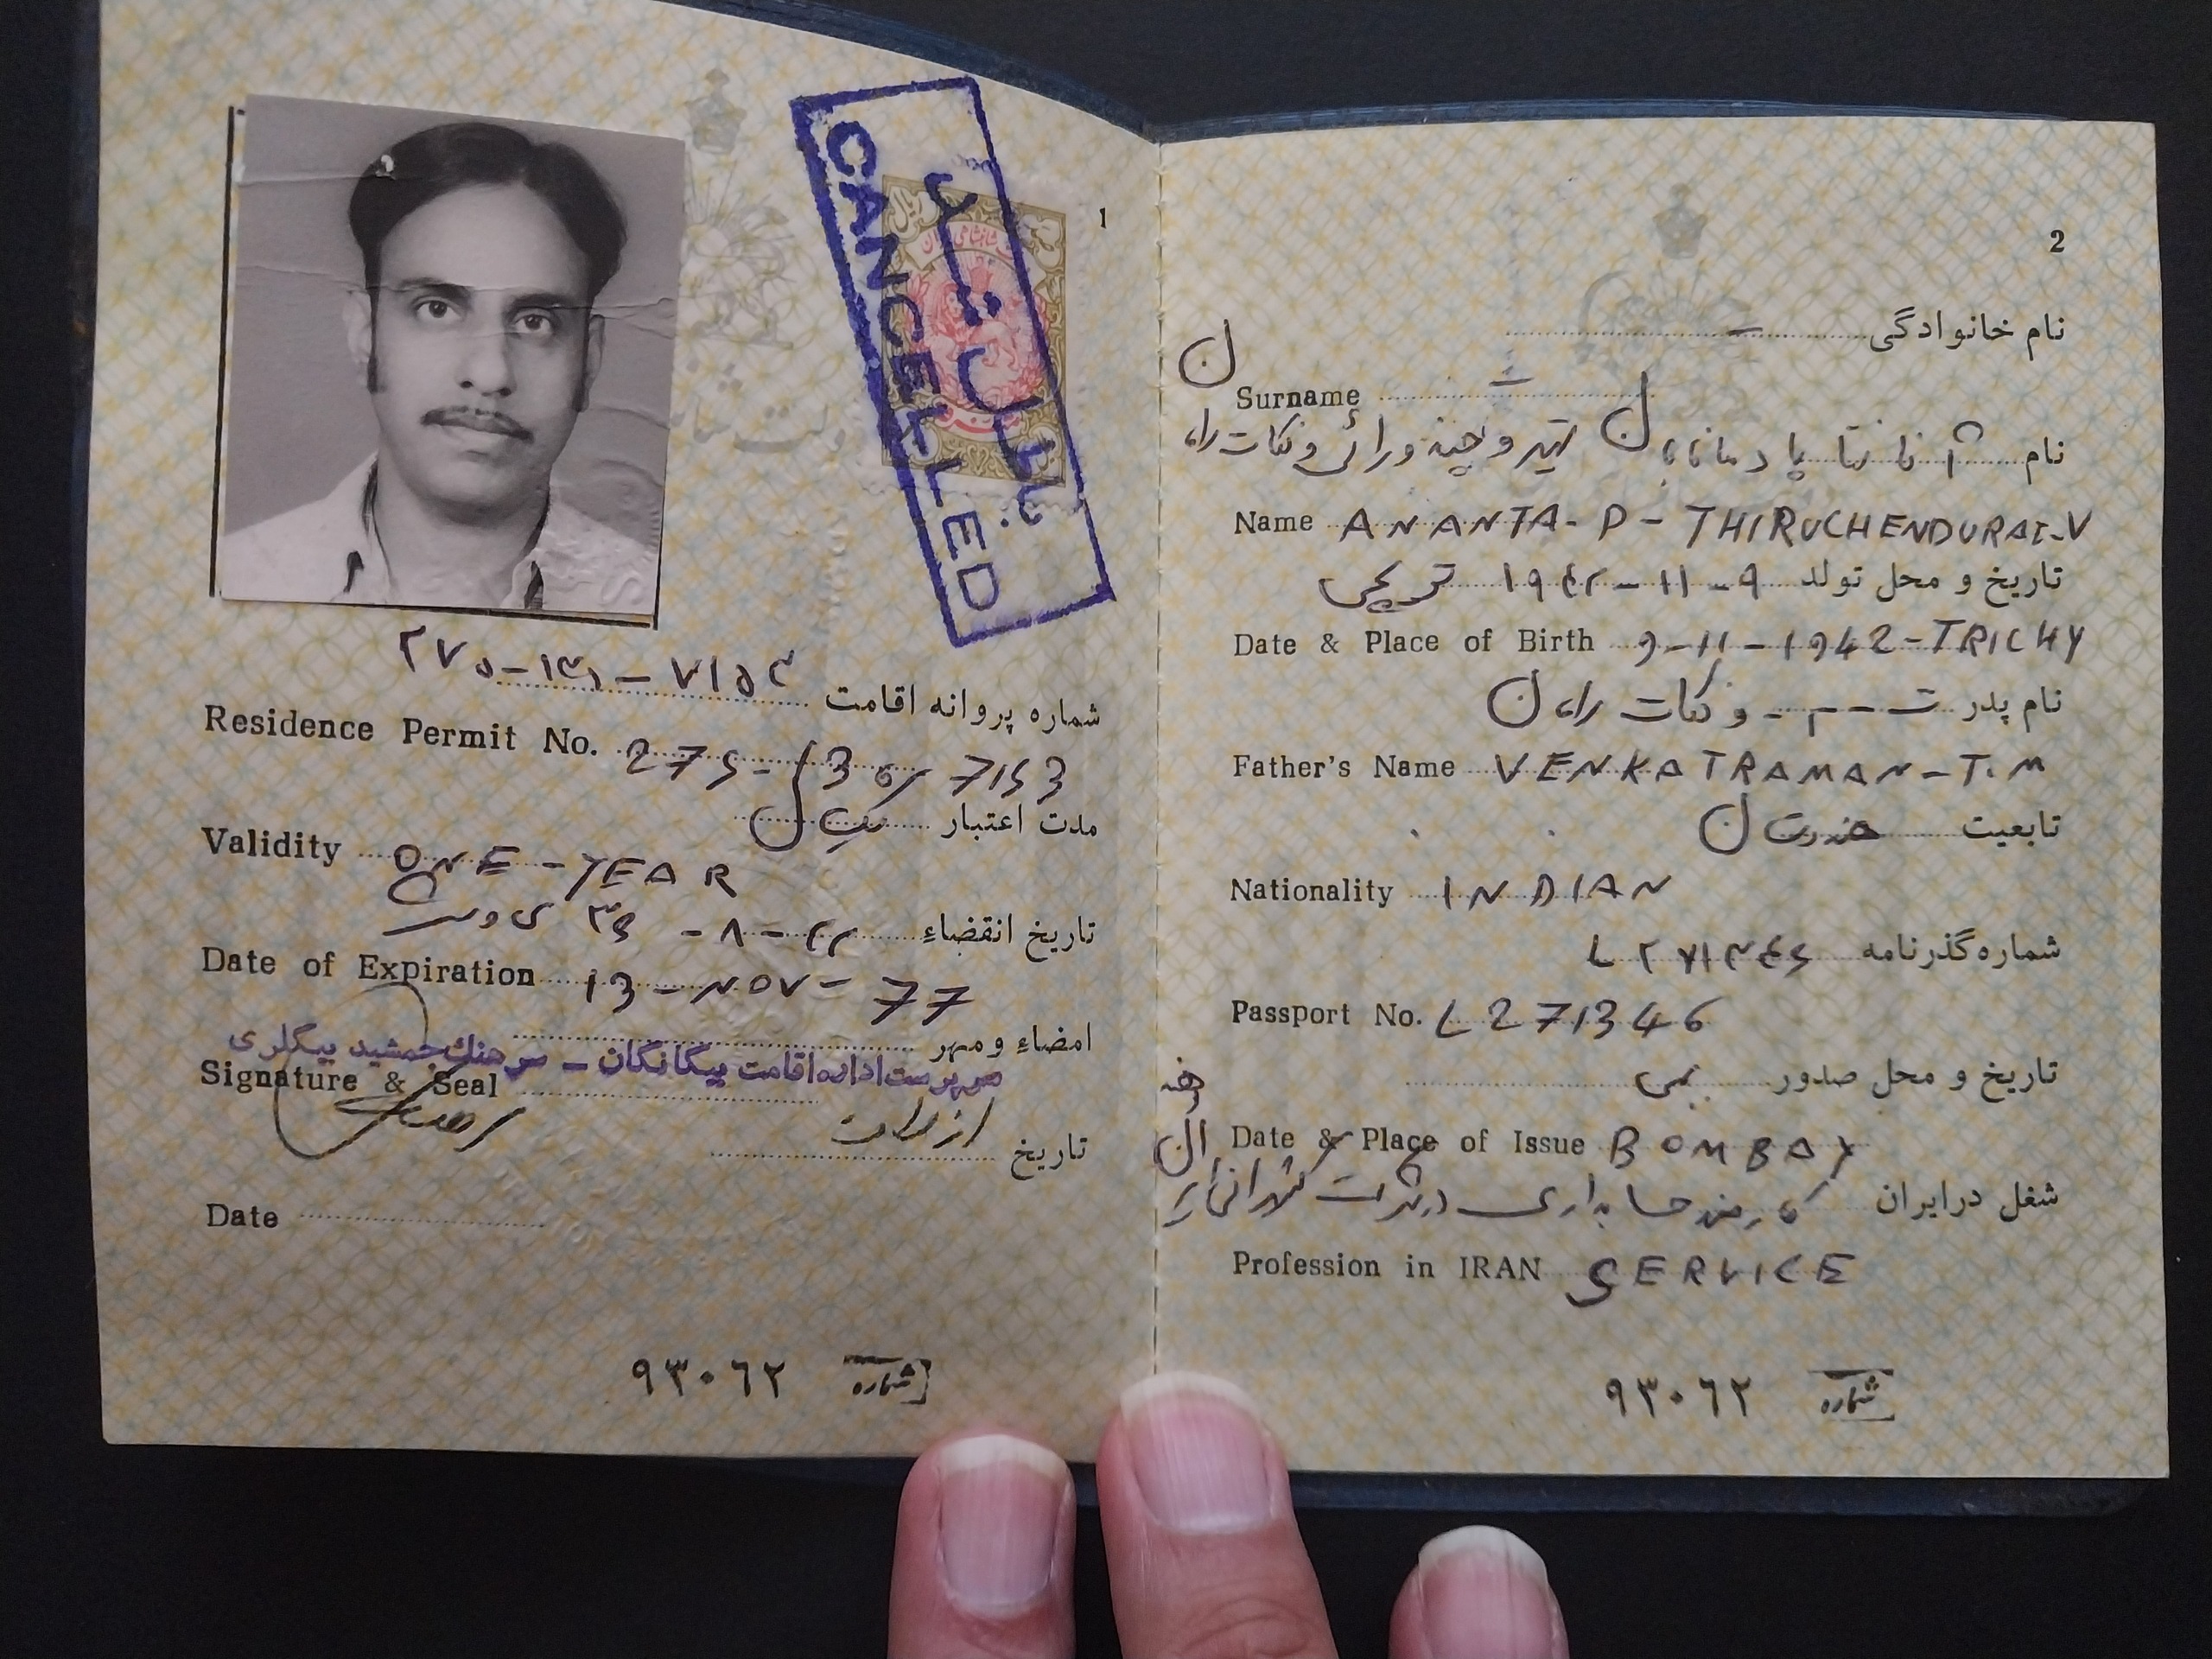 1
CANCELLED
باطل شد
۲۷۵-۱۳۰-۷۱۵۳ شماره پروانه اقامت
Residence Permit No. 275-130/7153
مدت اعتبار یکسال
Validity ONE-YEAR
تاریخ انقضاء ۲۲-۸-
Date of Expiration 13-NOV-77
امضاء و مهر
سرپرست اداره اقامت بیگانگان - سرهنگ جمشید بیگلری
Signature & Seal
تاریخ
Date
شماره ۹۳۰۶۲
2
نام خانوادگی -
Surname -
نام آنانتا پادمانابان تیروچندورائی ونکات رامان
Name ANANTA-P-THIRUCHENDURAI-V
تاریخ و محل تولد ۹-۱۱-۱۹۴۲ تریچی
Date & Place of Birth 9-11-1942-TRICHY
نام پدر ت-م- ونکات رامان
Father's Name VENKATRAMAN-T.M
تابعیت هندوستان
Nationality INDIAN
شماره گذرنامه L ۲۷۱۳۴۶
Passport No. L271346
تاریخ و محل صدور بمبی
Date & Place of Issue BOMBAY
شغل در ایران کارمند حسابداری در شرکت
Profession in IRAN SERVICE
شماره ۹۳۰۶۲